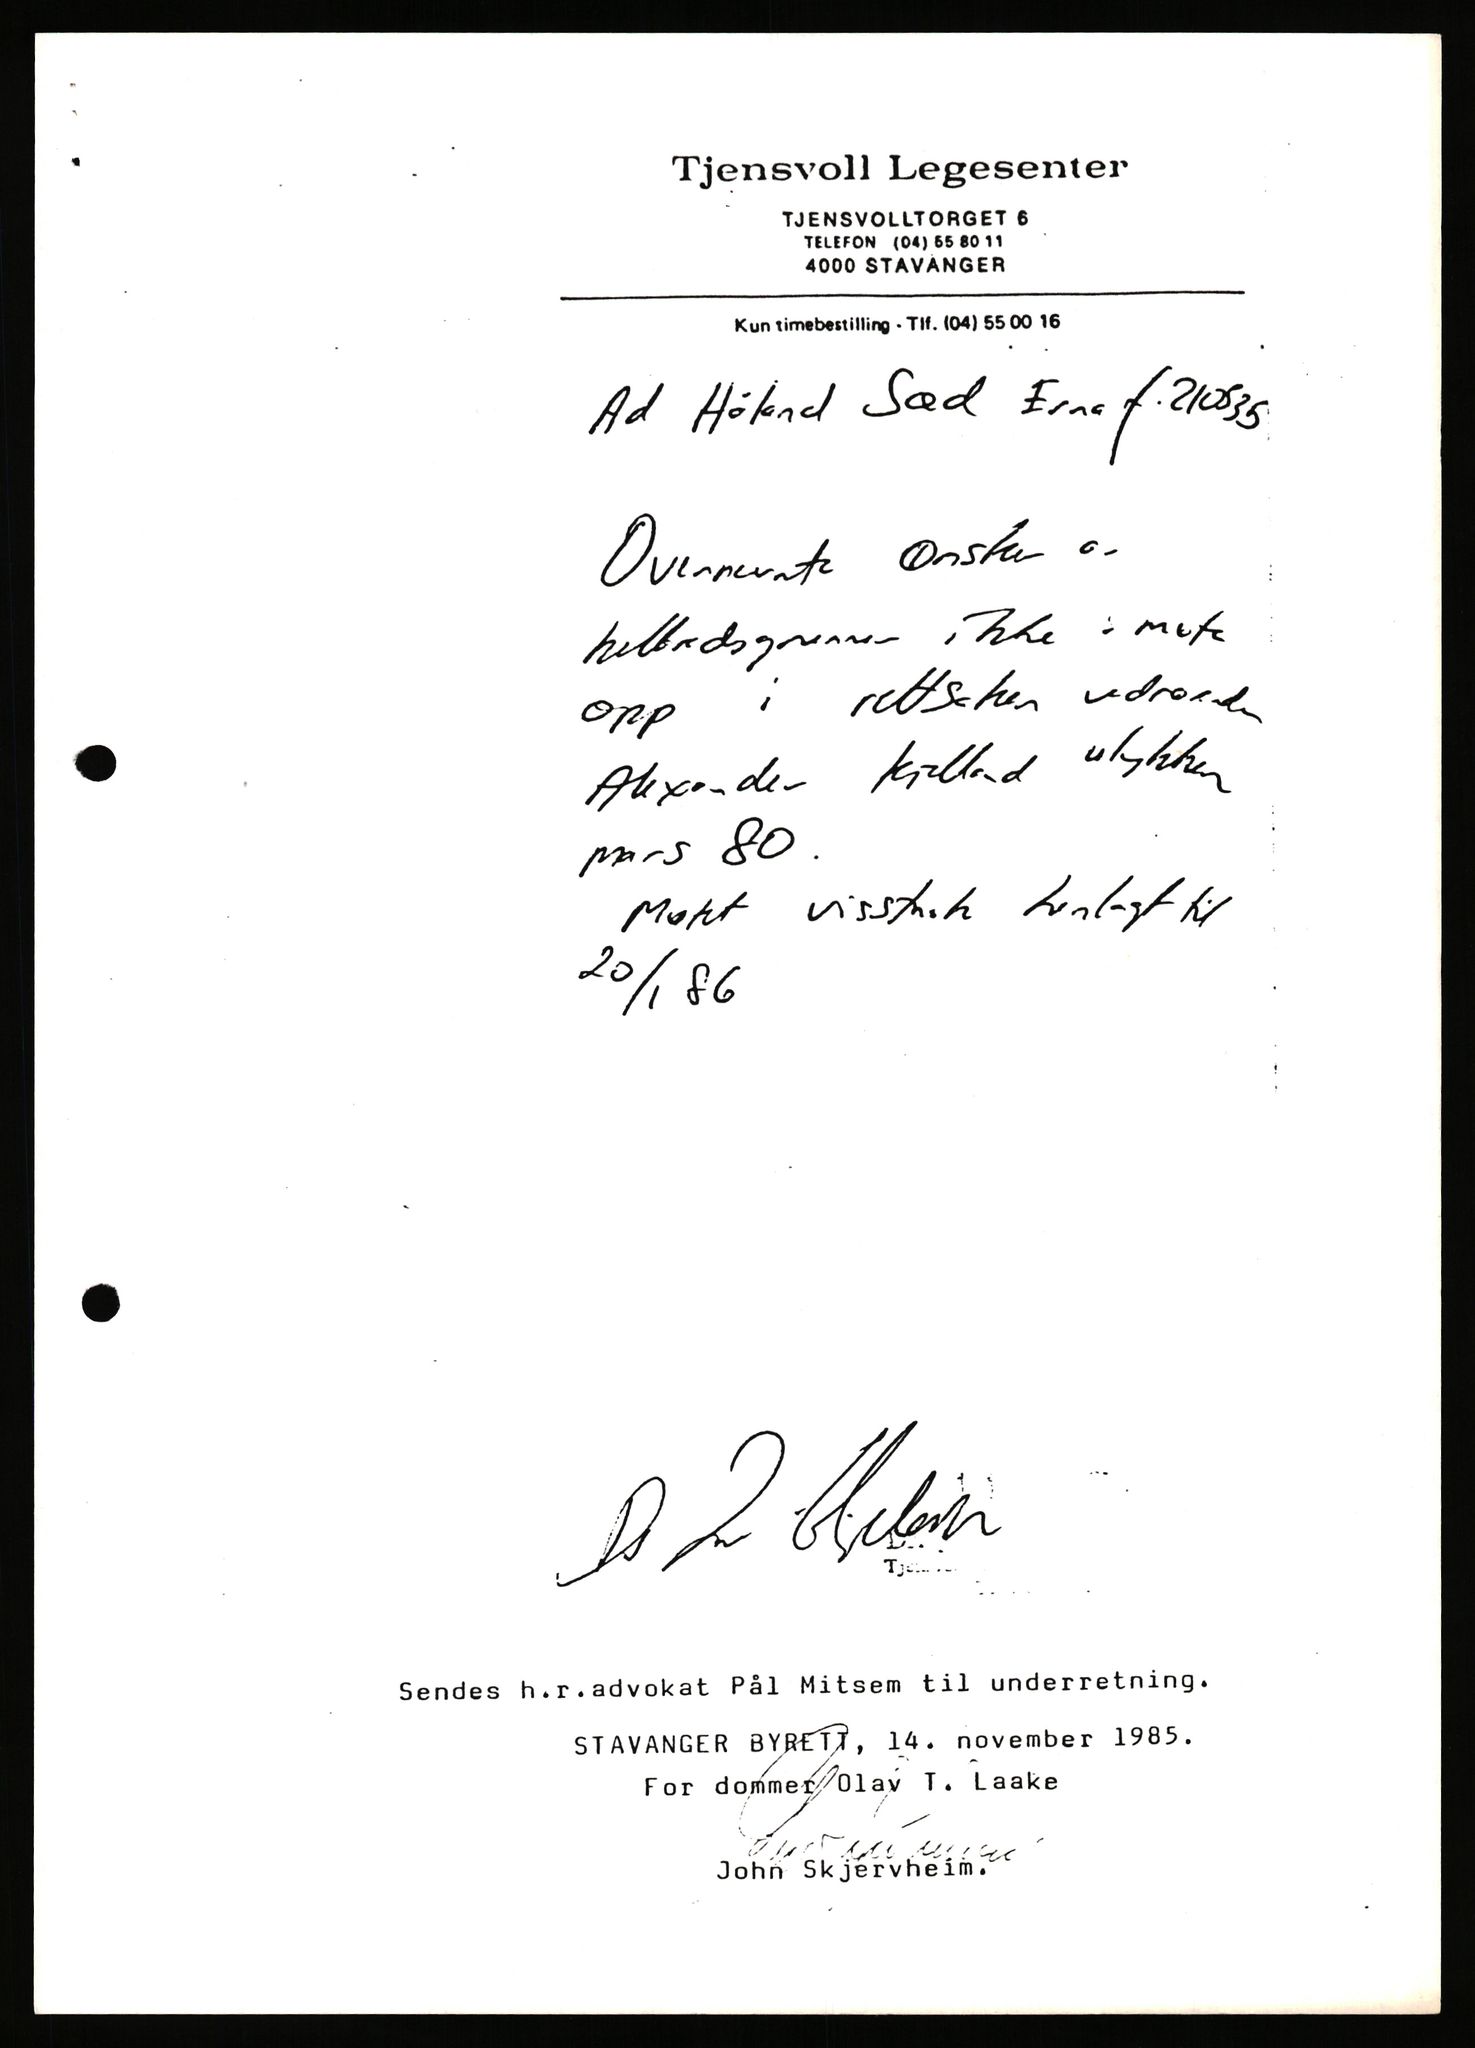 Tjensvoll Legesenter
TJENSVOLLTORGET 6
TELEFON (04) 55 80 11
4000 STAVANGER
Kun timebestilling - Tlf. (04) 55 00 16
Ad Høland Sæd Erna f. 210535
Overnevnte ønsker av
helbredsgrunner ikke å møte
opp i rettsaken vedrørende
Alexander Kjelland ulykken
mars 80.
Møtet visstnok berlagt til
20/1 86
Sendes h.r.advokat Pål Mitsem til underretning.
STAVANGER BYRETT, 14. november 1985.
For dommer Olav T. Laake
John Skjervheim.